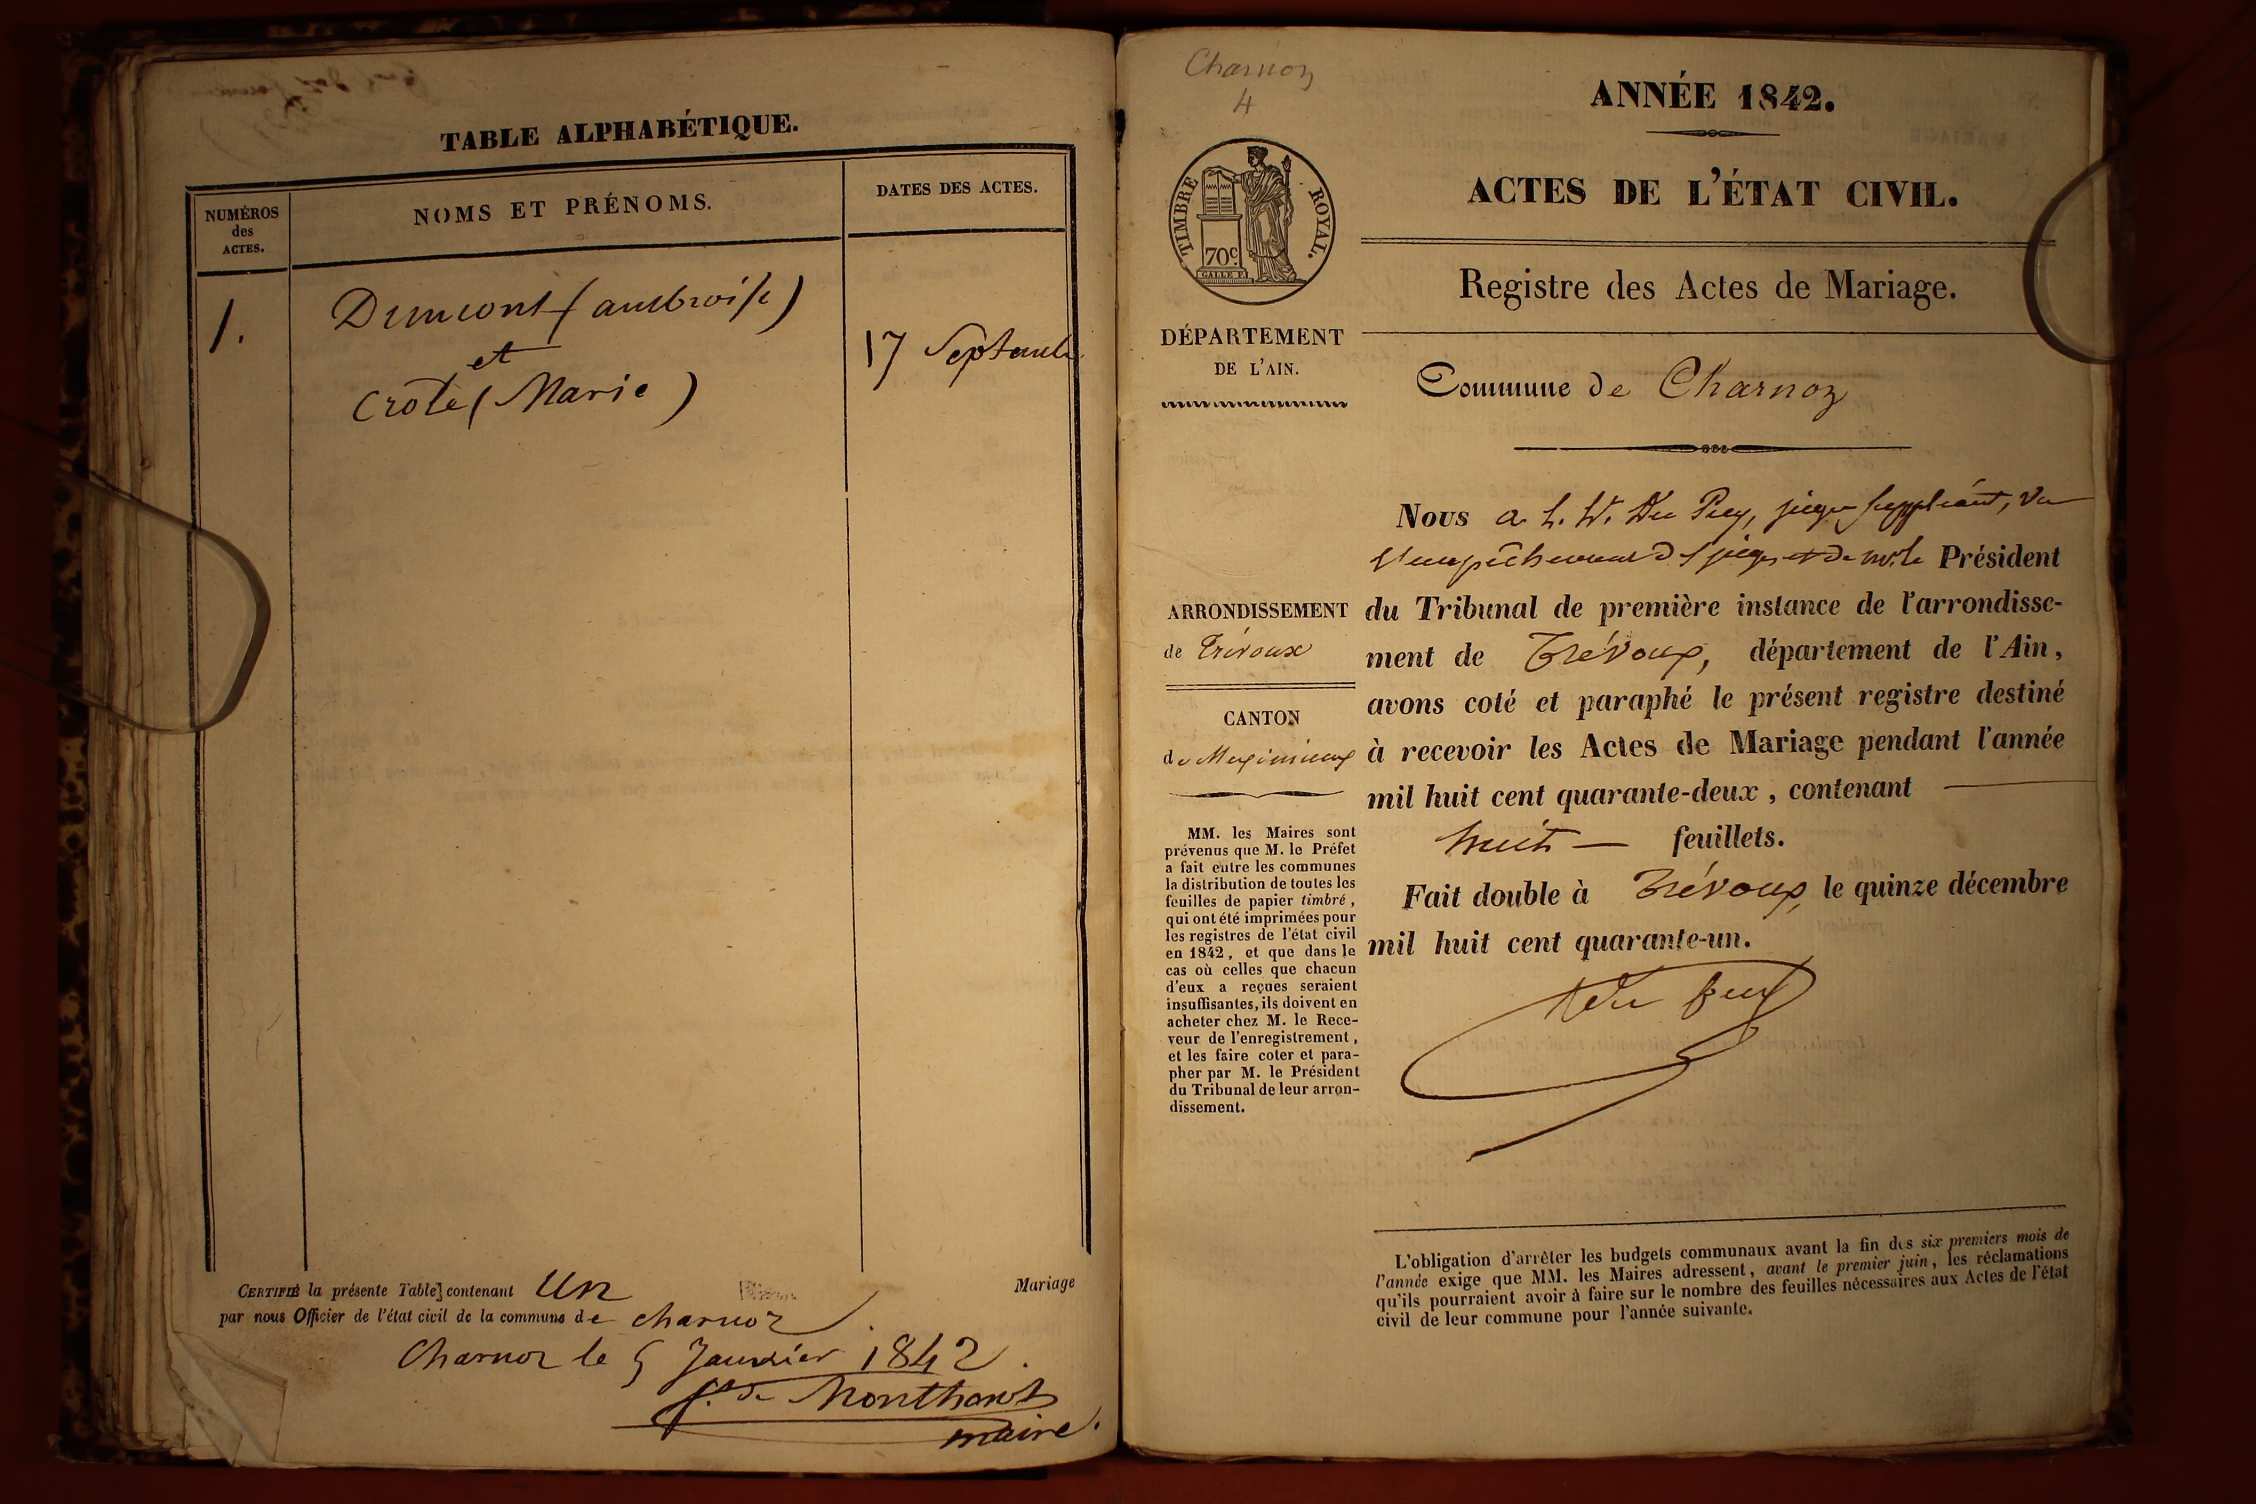 TABLE ALPHABÉTIQUE.
NUMÉROS
des
ACTES.
NOMS ET PRÉNOMS.
DATES DES ACTES.
1.
Dumont (ambroise)
et
Crôte (Marie)
17 Septembre
CERTIFIÉ la présente Table contenant Un Mariage
par nous Officier de l'état civil de la commune de charnoz
Charnoz le 5 Janvier 1842.
de Montherot
maire.
Charnoz
4
TIMBRE ROYAL.
70c.
DÉPARTEMENT
DE L'AIN.
ARRONDISSEMENT
de Trévoux
CANTON
de Meximieux
MM. les Maires sont
prévenus que M. le Préfet
a fait entre les communes
la distribution de toutes les
feuilles de papier timbré,
qui ont été imprimées pour
les registres de l'état civil
en 1842, et que dans le
cas où celles que chacun
d'eux a reçues seraient
insuffisantes, ils doivent en
acheter chez M. le Rece-
veur de l'enregistrement,
et les faire coter et para-
pher par M. le Président
du Tribunal de leur arron-
dissement.
ANNÉE 1842.
ACTES DE L'ÉTAT CIVIL.
Registre des Actes de Mariage.
Commune de Charnoz
Nous a. h. W. Du Puy, juge suppléant, vu
l'empêchement des juges et de Mr. le Président
du Tribunal de première instance de l'arrondisse-
ment de Trévoux, département de l'Ain,
avons coté et paraphé le présent registre destiné
à recevoir les Actes de Mariage pendant l'année
mil huit cent quarante-deux, contenant
huit feuillets.
Fait double à Trévoux, le quinze décembre
mil huit cent quarante-un.
Du Puy
L'obligation d'arrêter les budgets communaux avant la fin des six premiers mois de
l'année exige que MM. les Maires adressent, avant le premier juin, les réclamations
qu'ils pourraient avoir à faire sur le nombre des feuilles nécessaires aux Actes de l'état
civil de leur commune pour l'année suivante.